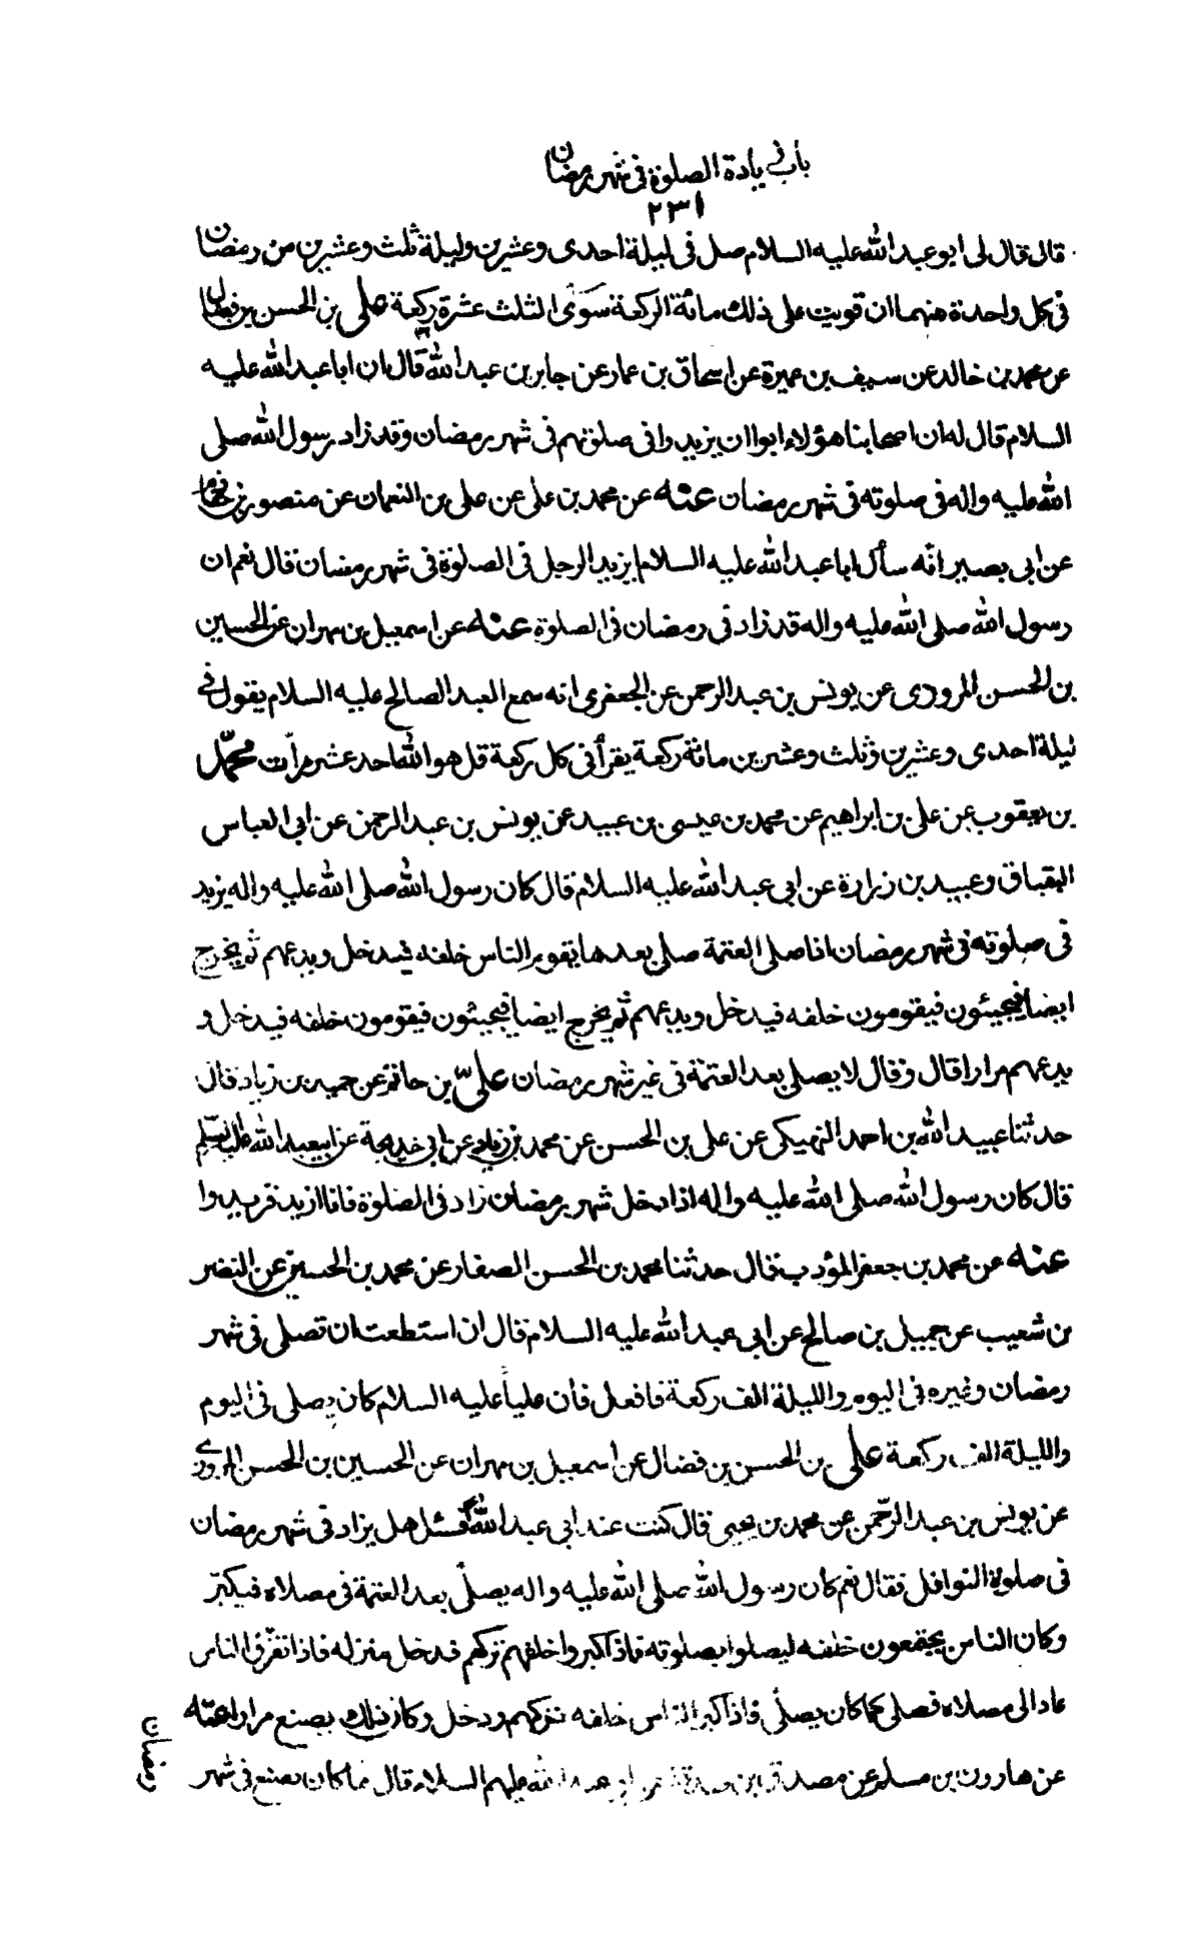 باب زيادة الصلوة فى شهر رمضان
٢٣١
قال قال لى ابو عبد الله عليه السلام صل فى ليلة احدى وعشرين وليلة ثلث وعشرين من رمضان
فى كل واحدة منهما ان قويت على ذلك مائة الركعة سوى الثلث عشرة ركعة على بن الحسن بن فضال
عن محمد بن خالد عن سيف بن عميرة عن اسحاق بن عمار عن جابر بن عبد الله قال ان ابا عبد الله عليه
السلام قال له ان اصحابنا هؤلاء ابوا ان يزيدوا فى صلوتهم فى شهر رمضان وقد زاد رسول الله صلى
الله عليه واله فى صلوته فى شهر رمضان عنه عن محمد بن على عن على بن النعمان عن منصور بن حازم
عن ابى بصير انّه سأل ابا عبد الله عليه السلام ايزيد الرجل فى الصلوة فى شهر رمضان قال نعم ان
رسول الله صلى الله عليه واله قد زاد فى رمضان فى الصلوة عنه عن اسمعيل بن مهران عن الحسين
بن الحسن المروزى عن يونس بن عبد الرحمن عن الجعفرى انه سمع العبد الصالح عليه السلام يقول فى
ليلة احدى وعشرين وثلث وعشرين مائة ركعة يقرأ فى كل ركعة قل هو الله احد عشر مرّات محمّد
بن يعقوب عن على بن ابراهيم عن محمد بن عيسى بن عبيد عن يونس بن عبد الرحمن عن ابى العباس
البقباق وعبيد بن زرارة عن ابى عبد الله عليه السلام قال كان رسول الله صلى الله عليه واله يزيد
فى صلوته فى شهر رمضان اذا صلى العتمة صلى بعدها يقوم الناس خلفه فيدخل ويدعهم ثم يخرج
ايضا فيجيئون فيقومون خلفه فيدخل ويدعهم ثم يخرج ايضا فيجيئون فيقومون خلفه فيدخل و
يدعهم مرارا قال وقال لا يصلى بعد العتمة فى غير شهر رمضان علىّ بن حاتم عن حميد بن زياد قال
حدثنا عبيد الله بن احمد النهيكى عن على بن الحسن عن محمد بن زياد عن ابى خديجة عن ابيعبد الله عليه السلم
قال كان رسول الله صلى الله عليه واله اذا دخل شهر رمضان زاد فى الصلوة فانا ازيد فزيدوا
عنه عن محمد بن جعفر المؤدب قال حدثنا محمد بن الحسن الصفار عن محمد بن الحسين عن النضر
بن شعيب عن جميل بن صالح عن ابى عبد الله عليه السلام قال ان استطعت ان تصلى فى شهر
رمضان وغيره فى اليوم والليلة الف ركعة فافعل فأن علياً عليه السلام كان يصلى فى اليوم
والليلة الف ركعة على بن الحسن بن فضال عن اسمعيل بن مهران عن الحسين بن الحسن المروزى
عن يونس بن عبد الرّحمن عن محمد بن يحيى قال كنت عند ابى عبد الله فسئل هل يزاد فى شهر رمضان
فى صلوة النوافل فقال نعم كان رسول الله صلى الله عليه واله يصلى بعد العتمة فى مصلاه فيكثر
وكان الناس يجتمعون خلفه ليصلوا بصلوته فاذا كبروا خلفهم تركهم ودخل منزله فاذا تفرّق الناس
عاد الى مصلاه فصلى كما كان يصلّى فاذا كبر الناس خلفه تركهم ودخل وكان ذلك يصنع مرارا عنه
عن هارون بن مسلم عن مصدق بن عبد الله عليهم السلام قال مما كان يصنع فى شهر
رمضان